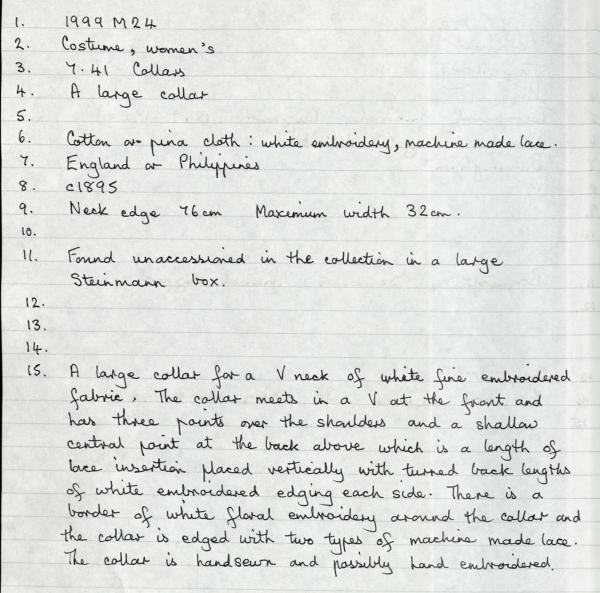 1. 1999 M 24
2. Costume, women's
3. 7.41 Collars
4. A large collar
5.
6. Cotton or pina cloth: white embroidery, machine made lace.
7. England or Philippines
8. c1895
9. Neck edge 76cm Maximum width 32cm.
10.
11. Found unaccessioned in the collection in a large
Steinmann box.
12.
13.
14.
15. A large collar for a V neck of white fine embroidered
fabric. The collar meets in a V at the front and
has three points over the shoulders and a shallow
central point at the back above which is a length of
lace insertion placed vertically with turned back lengths
of white embroidered edging each side. There is a
border of white floral embroidery around the collar and
the collar is edged with two types of machine made lace.
The collar is handsewn and possibly hand embroidered.